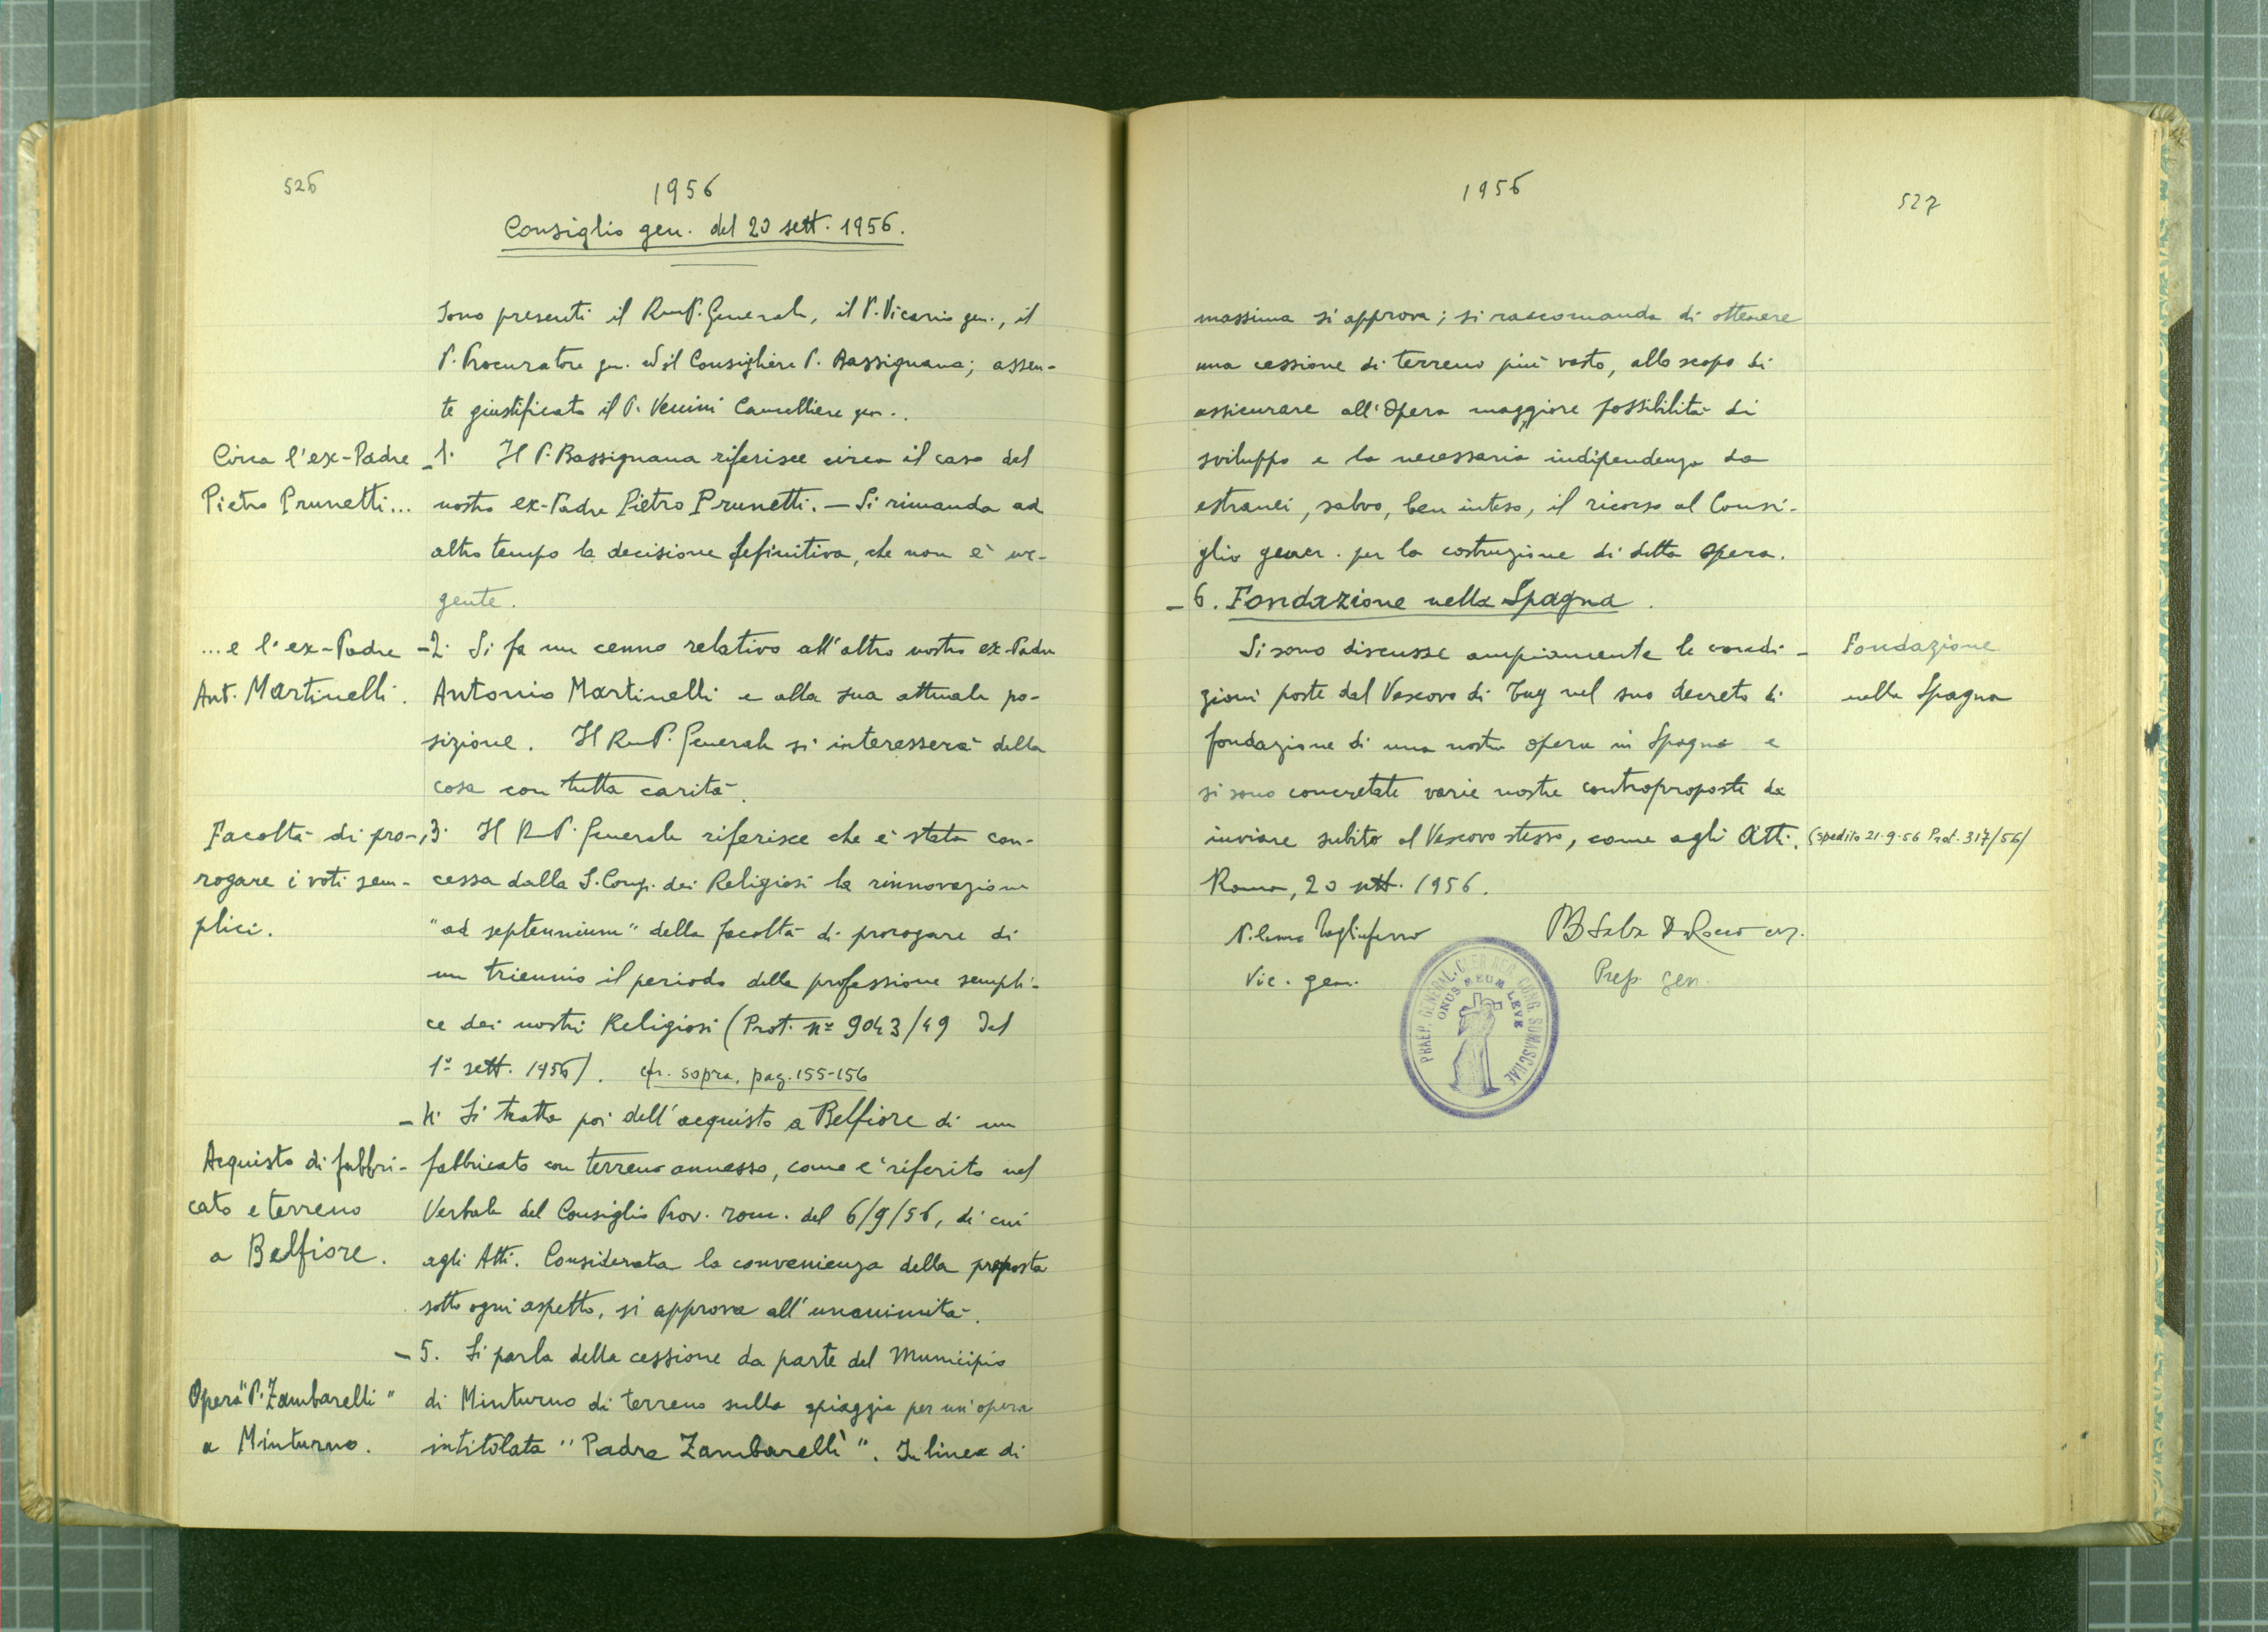 526
1956
Consiglio gen. del 20 sett. 1956.
Sono presenti il RmP. Generale, il P. Vicario gen., il
P. Procuratore gen. ed il Consigliere P. Bassignana; assen-
te giustificato il P. Venini Cancelliere gen..
Circa l'ex-Padre
Pietro Prunetti...
- 1. Il P. Bassignana riferisce circa il caso del
nostro ex-Padre Pietro Prunetti. — Si rimanda ad
altro tempo la decisione definitiva, che non è ur-
gente.
...e l'ex-Padre
Ant. Martinelli.
- 2. Si fa un cenno relativo all'altro nostro ex-Padre
Antonio Martinelli e alla sua attuale po-
sizione. Il RmP. Generale si interesserà della
cosa con tutta carità.
Facoltà di pro-
rogare i voti sem-
plici.
3. Il RmP. Generale riferisce che è stata con-
cessa dalla S. Congr. dei Religiosi la rinnovazione
"ad septennium" della facoltà di prorogare di
un triennio il periodo della professione sempli-
ce dei nostri Religiosi (Prot. nº 9043/49 del
1º sett. 1956). cfr. sopra, pag. 155-156
- 4. Si tratta poi dell'acquisto a Belfiore di un
Acquisto di fabbri-
cato e terreno
a Belfiore.
fabbricato con terreno annesso, come è riferito nel
Verbale del Consiglio Prov. rom. del 6/9/56, di cui
agli Atti. Considerata la convenienza della proposta
sotto ogni aspetto, si approva all'unanimità.
- 5. Si parla della cessione da parte del Municipio
Opera "P. Zambarelli"
a Minturno.
di Minturno di terreno sulla spiaggia per un'opera
intitolata "Padre Zambarelli". In linea di
1956
527
massima si approva; si raccomanda di ottenere
una cessione di terreno più vasto, allo scopo di
assicurare all'Opera maggiore possibilità di
sviluppo e la necessaria indipendenza da
estranei, salvo, ben inteso, il ricorso al Consi-
glio gener. per la costruzione di detta Opera.
- 6. Fondazione nella Spagna.
Si sono discusse ampiamente le condi-
zioni poste dal Vescovo di Tuy nel suo decreto di
fondazione di una nostra opera in Spagna e
si sono concretate varie nostre controproposte da
inviare subito al Vescovo stesso, come agli Atti.
Fondazione
nella Spagna
(spedito 21.9.56 Prot. 317/56)
Roma, 20 sett. 1956.
Tagliaferro
Vic. gen.
De Rocco crs.
Prep. gen.
PRAEP. GENERAL. CLER. REG. CONG. SOMASCHAE
ONUS MEUM LEVE